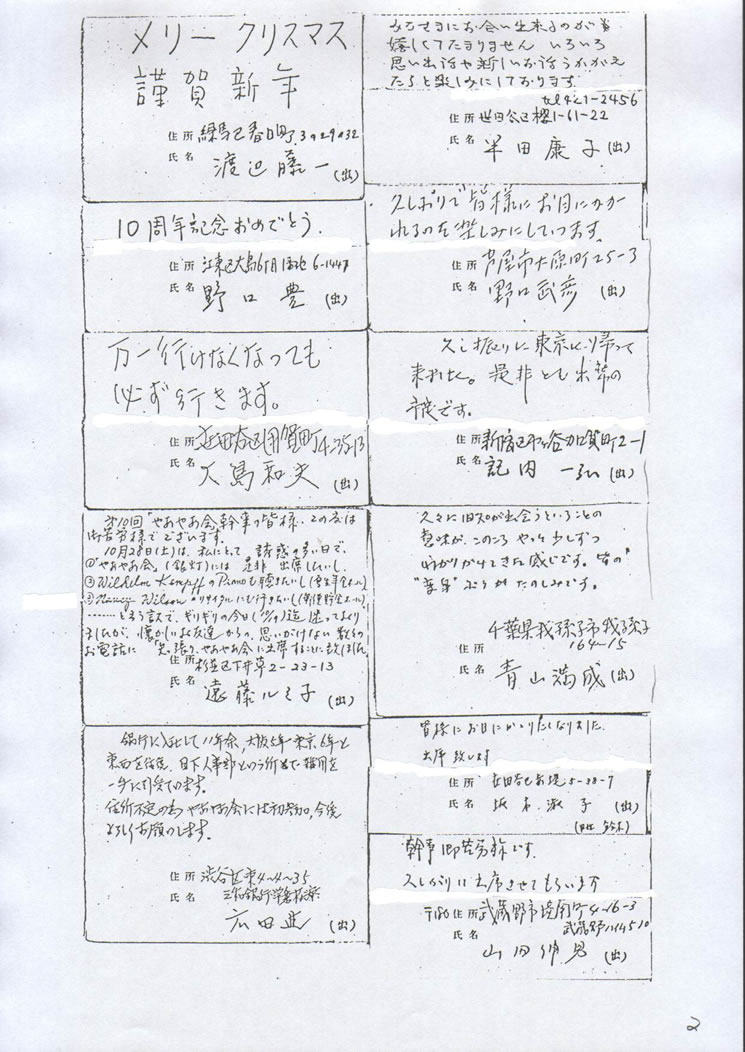 メリー クリスマス
謹賀新年
住所 練馬区春日町
氏名 渡辺藤一 (出)
10周年記念おめでとう.
住所 江東区大島6丁目団地 6-1447
氏名 野口 豊 (出)
万一行けなくなっても
必ず行きます。
住所 世田谷区用賀町4-35-13
氏名 大島和夫 (出)
第10回 "やあやあ会"幹事の皆様. この度は
御苦労様でございます.
10月28日(土)は、私にとって 誘惑の多い日で、
①"やあやあ会"(銀灯)には 是非 出席したいし、
② Wilhelm KempffのPianoも聴きたいし
③ Nancy Wilsonのリサイタルにも行きたいし
………という訳で、ギリギリの今日 迄 迷っており
ましたが、懐かしいお友達からの、思いがけない 数々の
お電話に "矢張り、やあやあ会に出席することに致しました。
住所 杉並区下井草2-23-13
氏名 遠藤ルミ子 (出)
銀行に入社して11年余、大阪5年、東京6年と
東西を往復、目下人事部という所で 採用を
一手に引受ています。
住所不定の為 やあやあ会には初参加、今後
よろしくお願いします。
住所 渋谷区東4-4-35
氏名 広田 (出)
みなさまにお会い出来るのが
嬉しくてたまりません いろいろ
思い出話や新しいお話うかがえ
たらと楽しみにしております.
tel 421-2456
住所 世田谷区桜1-61-22
氏名 半田康子 (出)
久しぶりで皆様にお目にかか
れるのを楽しみにしています.
住所 芦屋市大原町25-3
氏名 野口武彦 (出)
久し振りに東京に帰って
来ました。是非とも出席の
予定です。
住所 新宿区市ヶ谷加賀町2-1
氏名 記内 (出)
久々に旧友が出会うということの
意味が、このごろ やっと少しずつ
わかりかけてきた感じです。皆の
ぶりが たのしみです。
千葉県我孫子市我孫子
住所 164-15
氏名 青山満成 (出)
皆様にお目にかかりたくなりました.
出席致します
住所 世田谷区 5-38-7
氏名 坂本淑子 (出)
(旧姓 鈴木)
幹事御苦労様です.
久しぶりに出席させてもらいます
住所 武蔵野市境南町4-16-3
氏名 山田 (出)
2